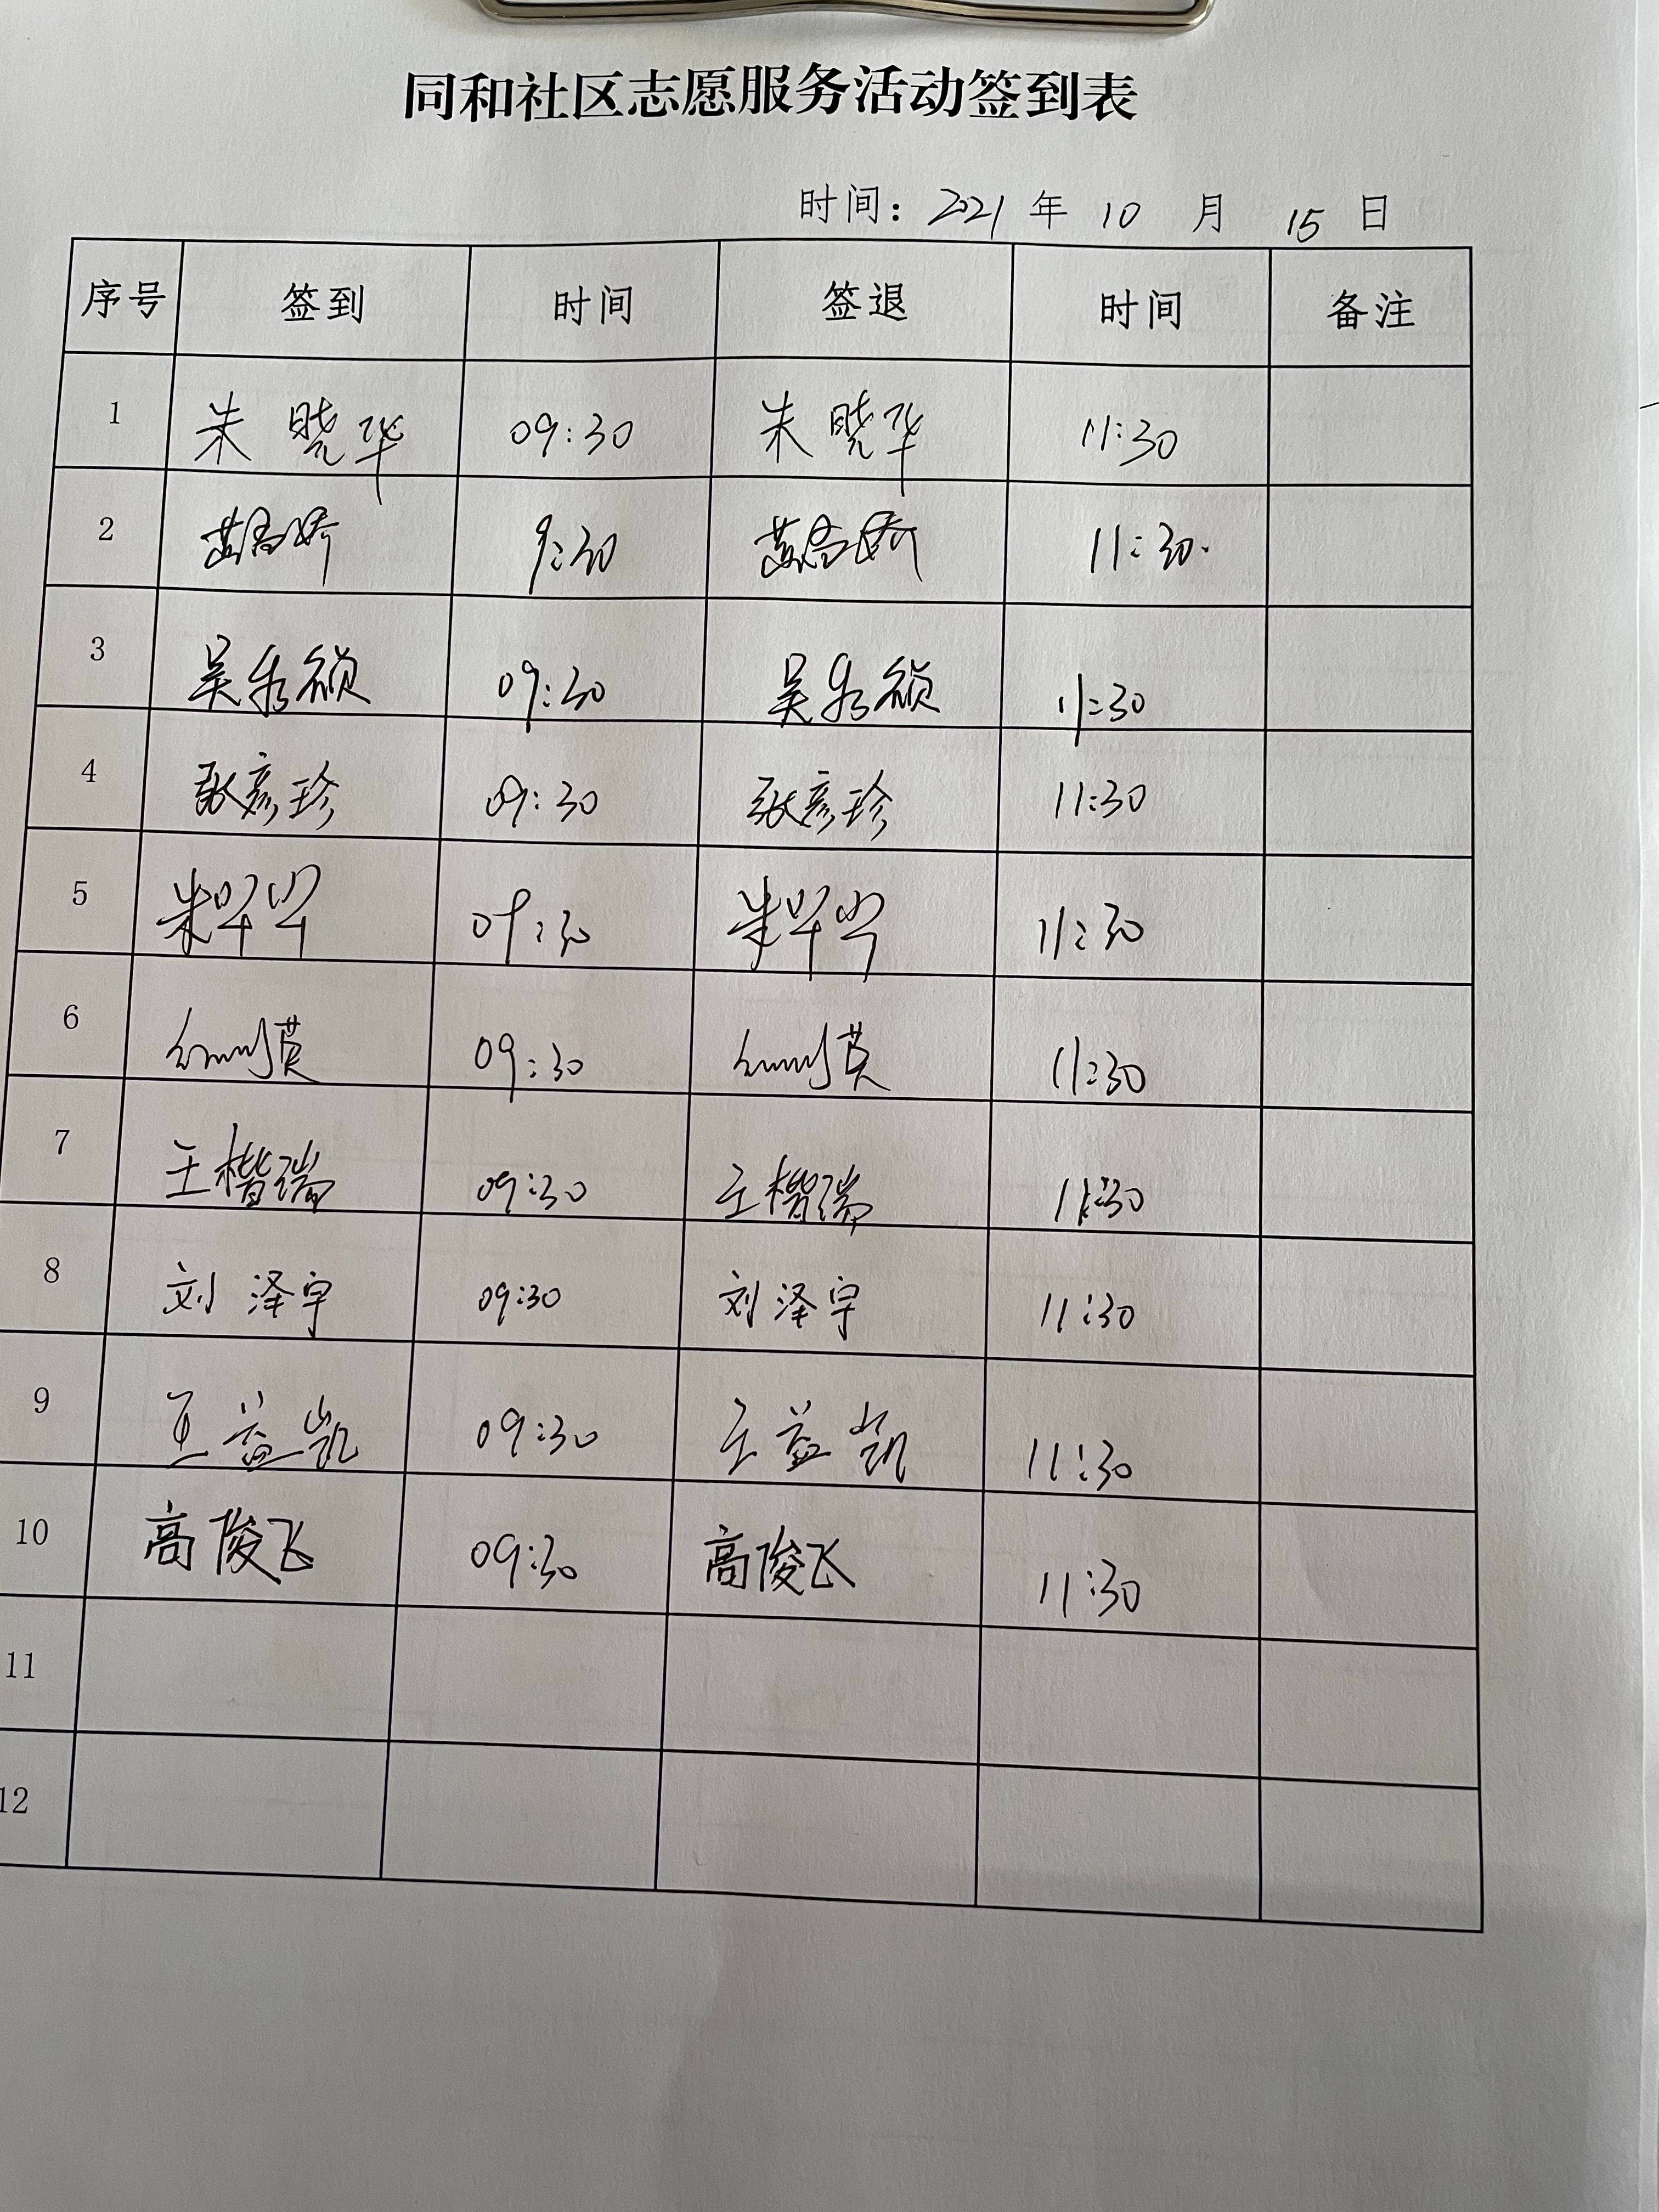 同和社区志愿服务活动签到表
时间：2021 年 10 月 15 日
序号 签到 时间 签退 时间 备注
1 朱晓华 09:30 朱晓华 11:30
2 9:30 11:30.
3 吴秀祯 09:30 吴秀祯 11:30
4 张彦珍 09:30 张彦珍 11:30
5 朱 09:30 朱 11:30
6 09:30 11:30
7 王楷瑞 09:30 王楷瑞 11:30
8 刘泽宇 09:30 刘泽宇 11:30
9 王益凯 09:30 王益凯 11:30
10 高俊飞 09:30 高俊飞 11:30
11
12